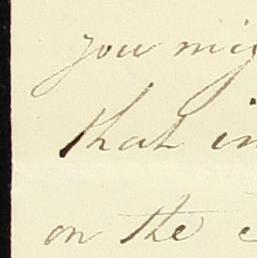 you mig
that in
on the